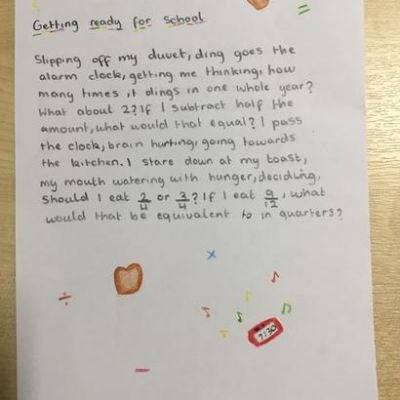 Getting ready for School
Slipping off my duvet, ding goes the
alarm clock, getting me thinking, how
many times it dings in one whole year?
What about 2? If I subtract half the
amount, what would that equal? I pass
the clock, brain hurting, going towards
the kitchen. I stare down at my toast,
my mouth watering with hunger, deciding,
Should I eat 2/4 or 3/4? If I eat 9/12, what
would that be equivalent to in quarters?
=
×
÷
7:30
−